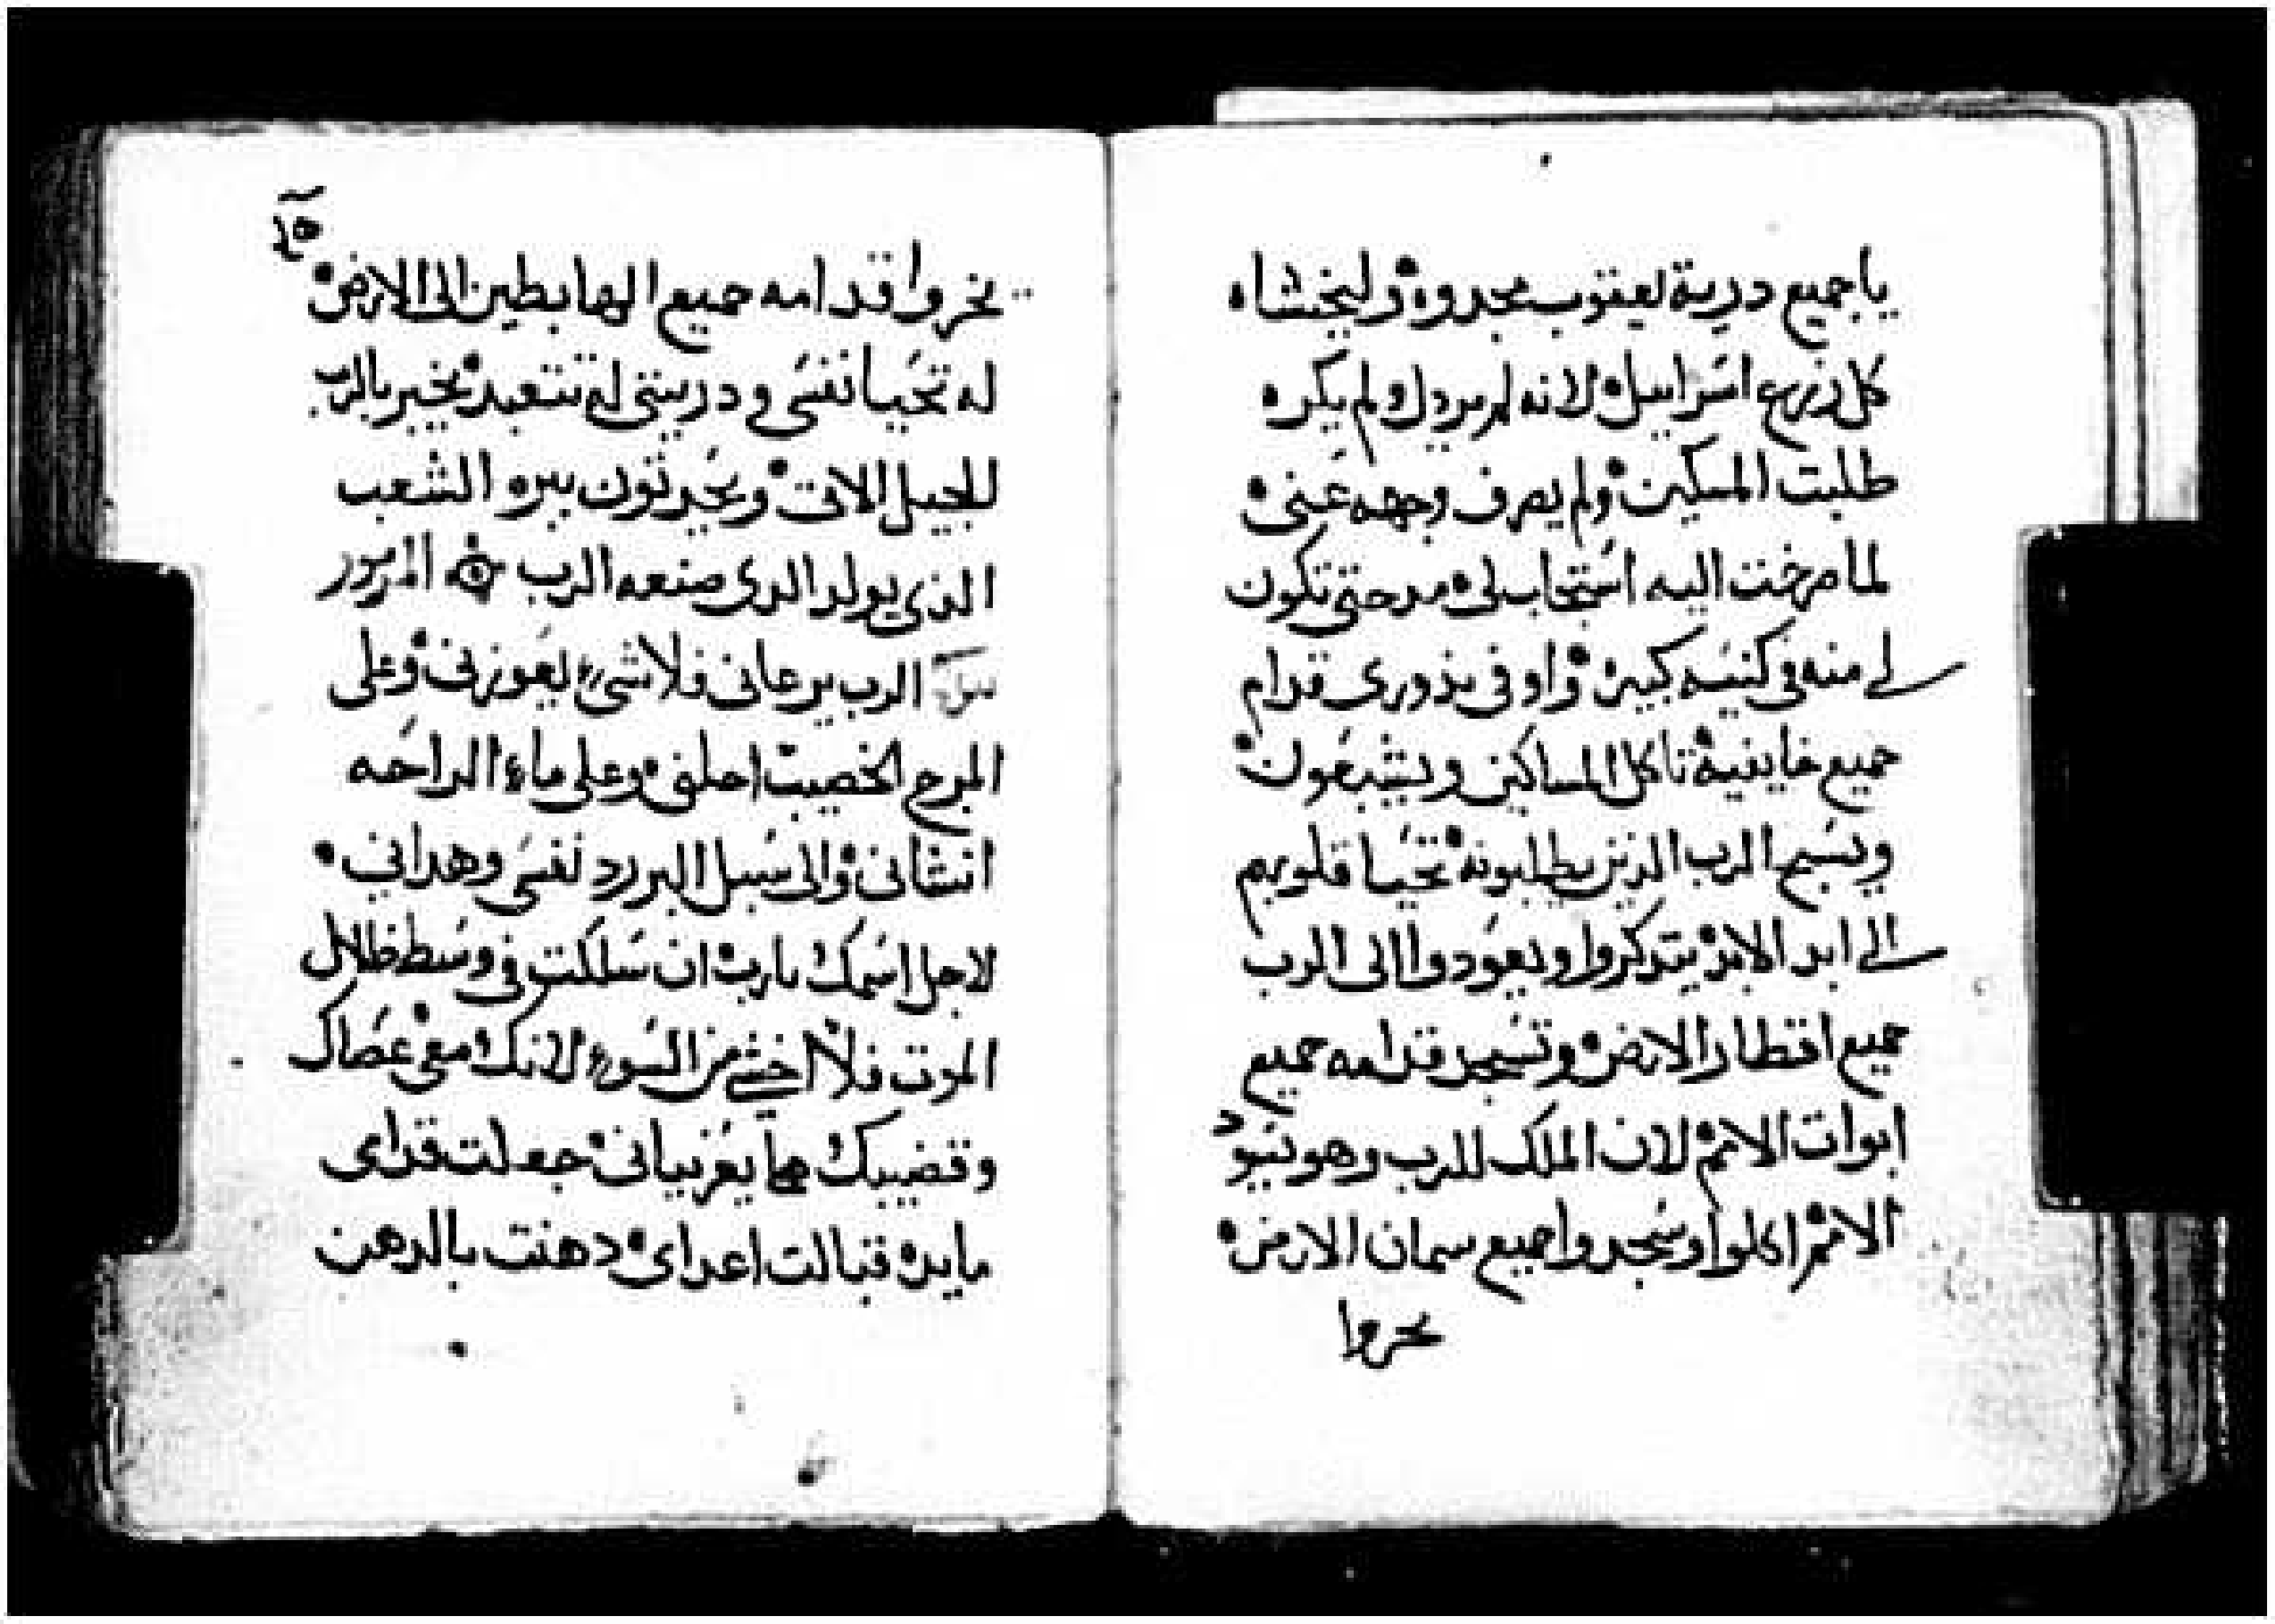 ياجميع درية يعقوب مجدوه وليخشاه
كل زرع اسراييل لانه لم يردل ولم يكره
طلبت المسكين ولم يصرف وجهه عني
لما صرخت اليه استجاب لي مدحتي تكون
لي منه في كنيسه كبيره واوفي نذوري قدام
جميع خايفيه تاكل المساكين ويشبعون
ويسبح الرب الذين يطلبونه تحيا قلوبهم
الي ابد الابد يتدكروا ويعودوا الى الرب
جميع اقطار الارض وتسجد قدامه جميع
ابوات الامم لان الملك للرب وهو يسود
الامم اكلوا وسجدوا جميع سمان الارض
يخروا
يخروا قدامه جميع الهابطين الى الارض
له تحيا نفسي ودريتي له تتعبد يخبر بالرب
للجيل الاتي ويخبرون ببره الشعب
الذي يولد الدي صنعه الرب المزمور
الرب يرعاني فلا شيء يعوزني وعلى
المرج الخصيب احلني وعلى ماء الراحه
انشاني والى سبل البر رد نفسي وهداني
لاجل اسمك يارب ان سلكت في وسط ظلال
الموت فلا اخشي من السوء لانك معي عصاك
وقضيبك هما يعزياني جعلت قدامي
مايده قبالت اعداي دهنت بالدهن